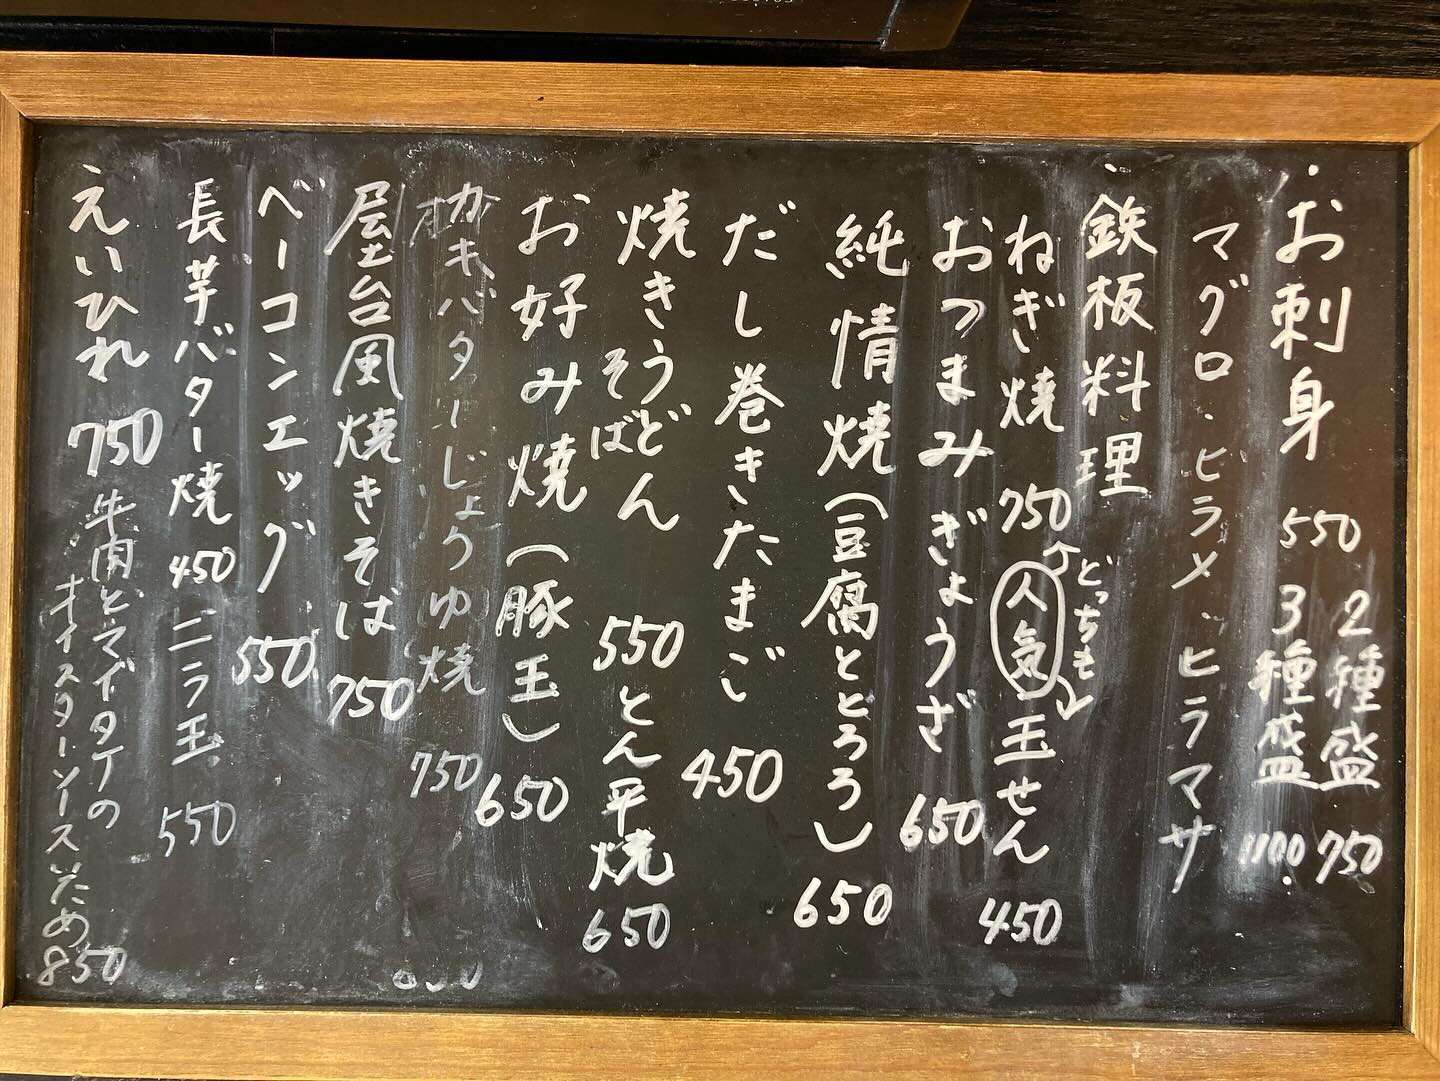 ・お刺身 550 2種盛 750
3種盛 1100.
マグロ・ヒラメ・ヒラマサ
・鉄板料理
ねぎ焼 750 人気 玉せん 450
どっちも
おつまみぎょうざ 650
純情焼(豆腐ととろろ) 650
だし巻きたまご 450
焼きうどん 550 とん平焼 650
そば
お好み焼(豚玉) 650
カキバターしょうゆ焼 750
屋台風焼きそば 750
ベーコンエッグ 550
長芋バター焼 450 ニラ玉 550
えいひれ 750 牛肉とマイタケの
オイスターソースいため 850